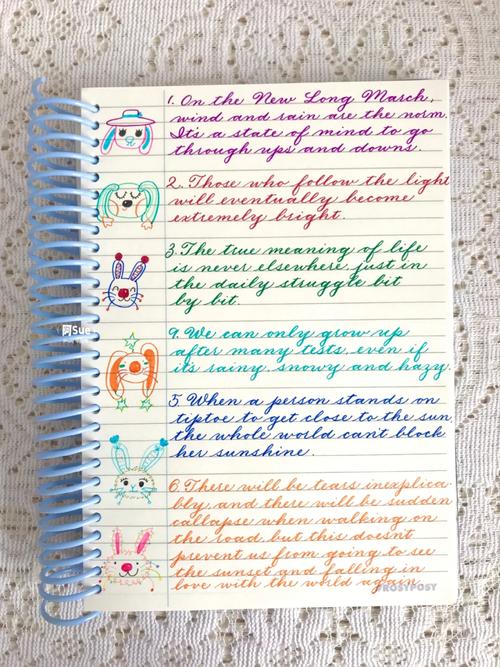 1. On the New Long March,
wind and rain are the norm.
It's a state of mind to go
through ups and downs.
2. Those who follow the light
will eventually become
extremely bright.
3. The true meaning of life
is never elsewhere, just in
the daily struggle bit
by bit.
4. We can only grow up
after many tests, even if
it's rainy, snowy and hazy.
5. When a person stands on
tiptoe to get close to the sun,
the whole world can't block
her sunshine.
6. There will be tears inexplica
bly, and there will be sudden
callapse when walking on
the road, but this doesn't
prevent us from going to see
the sunset and falling in
love with the world again.
阿Sue
ROSYPOSY